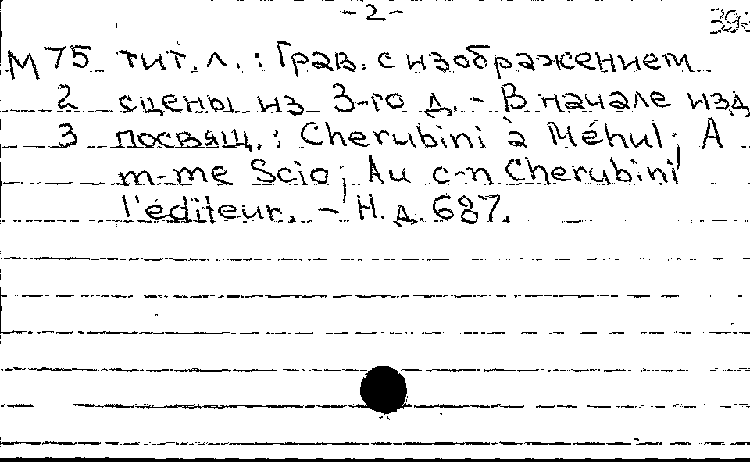 -2-
М 75 тит. л.: Грав. с изображением
2 сцены из 3-го д. - В начале изд
3 посвящ.: Cherubini à Méhul; A
m-me Scio; Au c-n Cherubini
l'éditeur. - Н. д. 687.